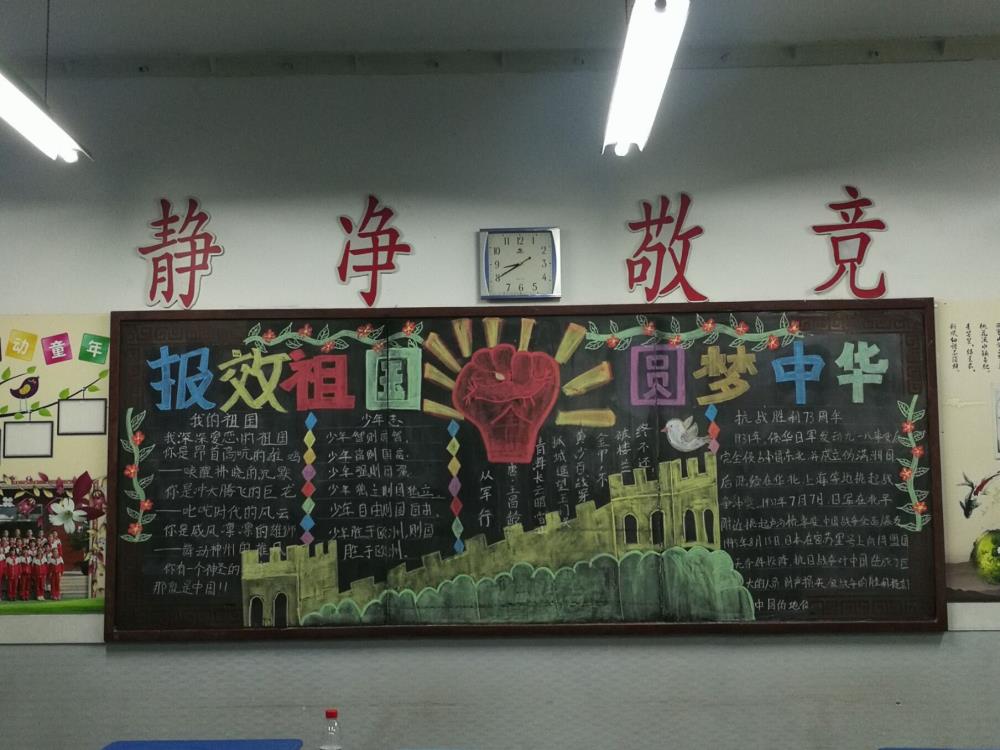 静 净 敬 竞
动童年
报效祖国 圆梦中华
我的祖国
我深深爱恋的祖国
你是昂首高吭的雄鸡
——唤醒拂晓的沉默
你是冲天腾飞的巨龙
——叱咤时代的风云
你是威风凛凛的雄狮
——舞动神州的雄风
你有一个神圣的
那就是中国!!
少年志
少年智则国智,
少年富则国富,
少年强则国强,
少年独立则国独立,
少年自由则国自由,
少年胜于欧洲,则国
胜于欧洲.
从军行
唐·王昌龄
青海长云暗雪
孤城遥望玉门
黄沙百战穿
金甲不
破楼兰
终不还
抗战胜利73周年
1931年,侵华日军发动九一八事变后
完全侵占中国东北,并成立伪满洲国
后陆续在华北、上海等地挑起战
争冲突,1937年7月7日,日军在北平
附近挑起卢沟桥事变,中国战争全面爆发
1945年8月15日,日本在
无条件投降,抗日战争
中国的地位
12
11
10
9
8
7
6
5
4
3
2
1